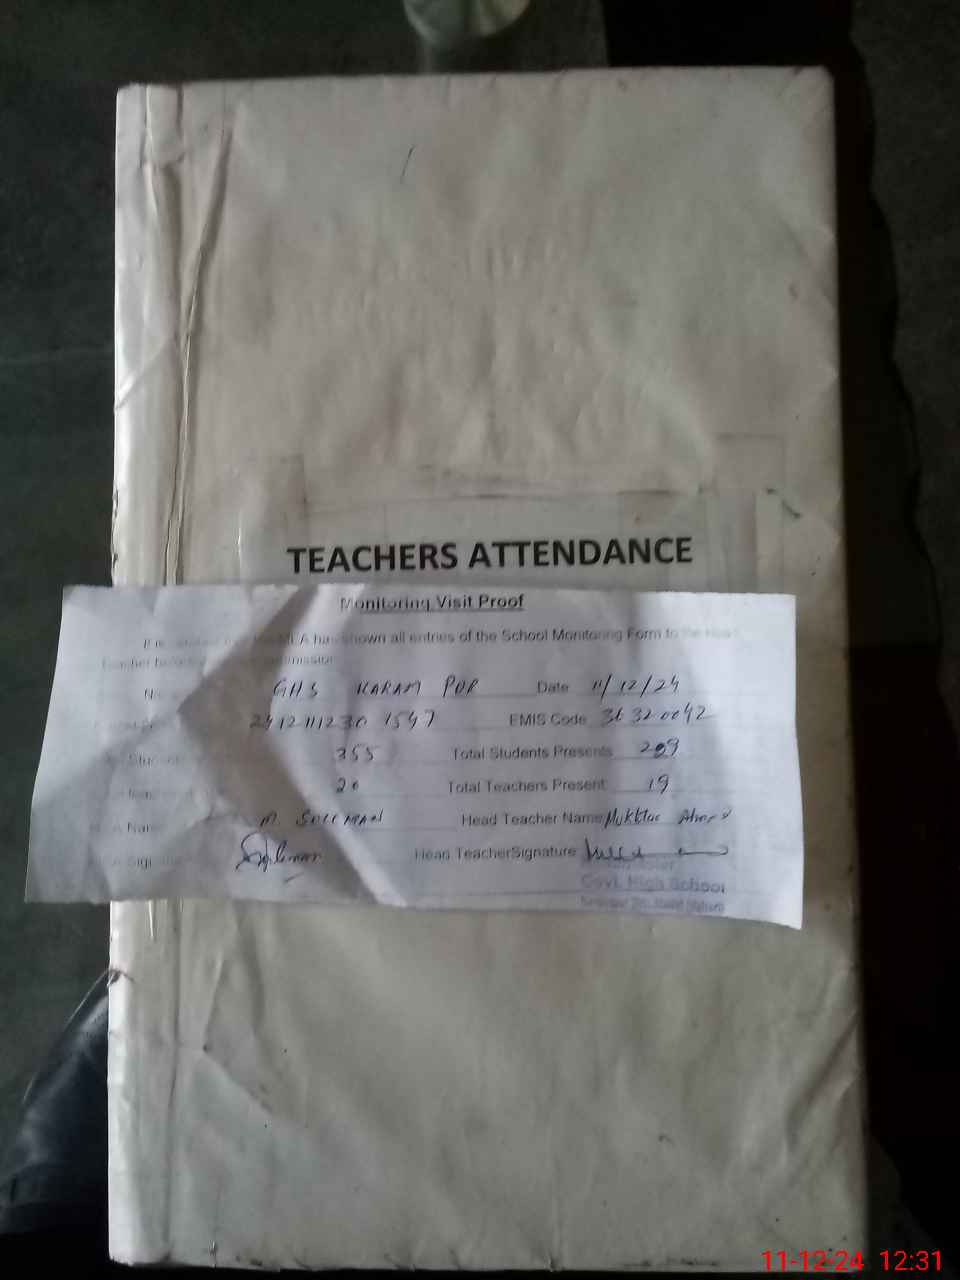 TEACHERS ATTENDANCE
Monitoring Visit Proof
MEA have shown all entries of the School Monitoring Form to the Head
Teacher before
GHS KARAM PUR Date 11/12/24
2412111230 1547 EMIS Code 36320042
Student 355 Total Students Presents 209
20 Total Teachers Present 19
Name M. SULEMAN Head Teacher Name Mukhtar Ahmed
Head TeacherSignature
Govt. High School
11-12-24 12:31